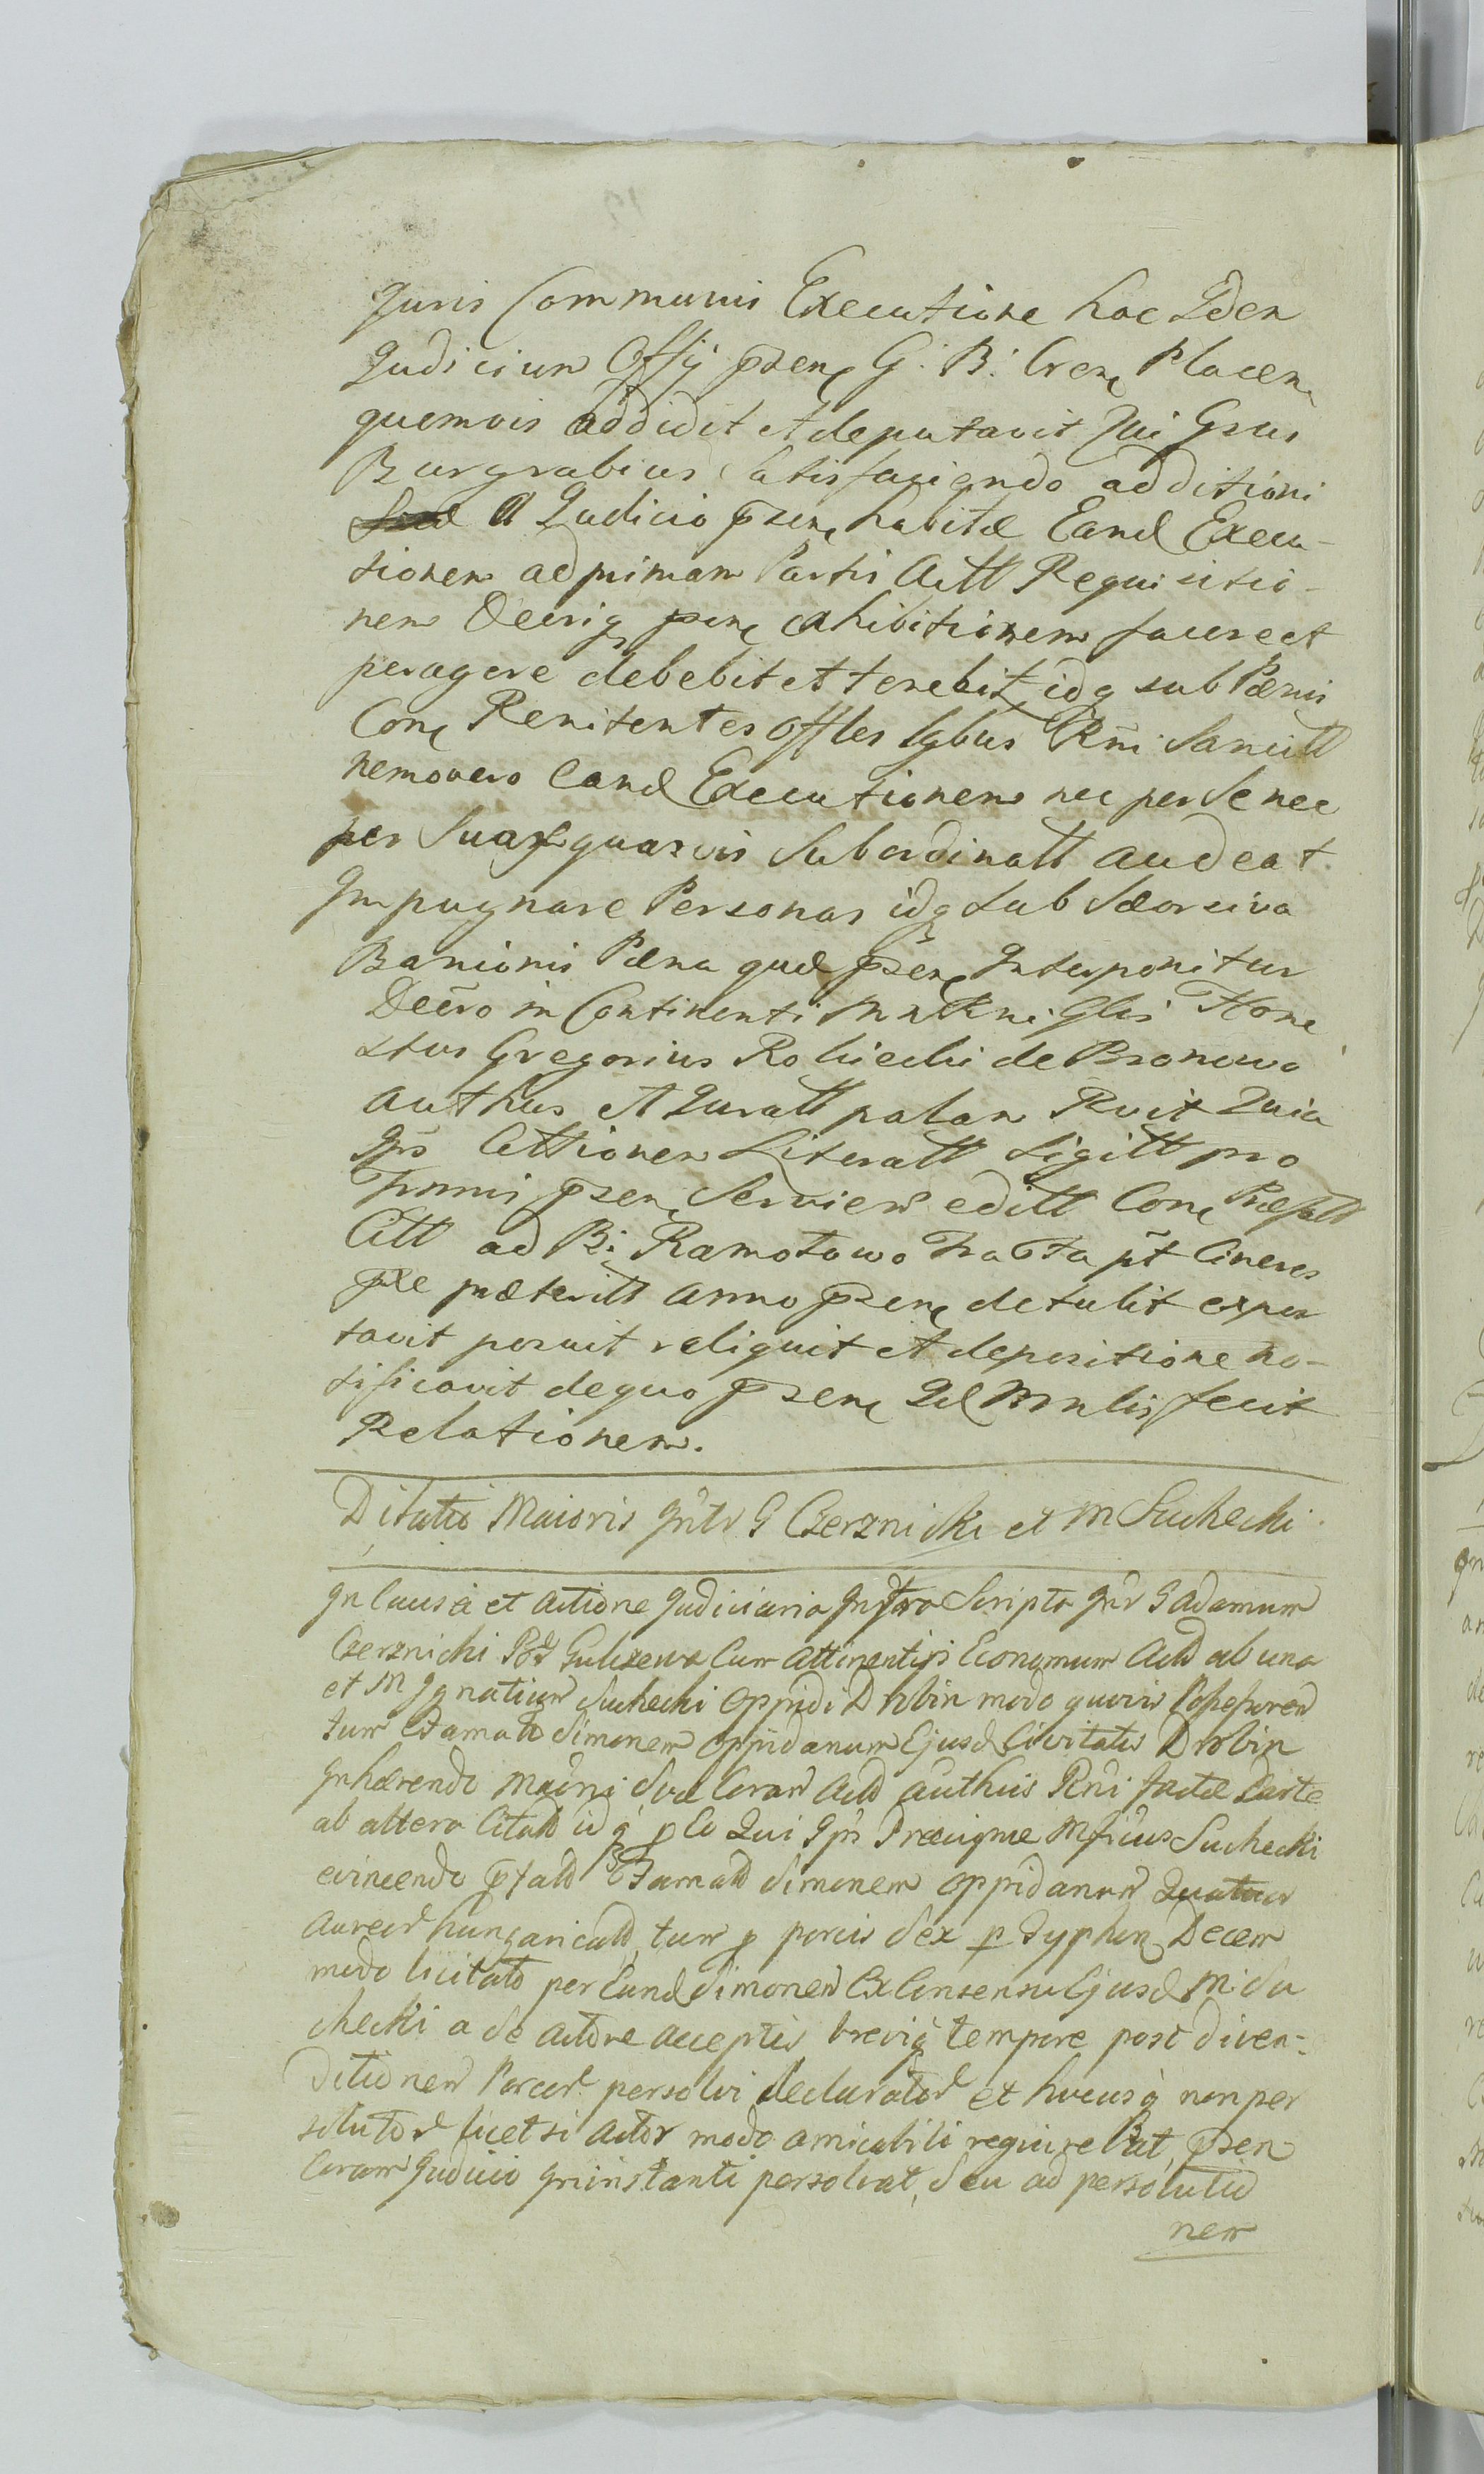 Juris Communis Executione hoc Iden
Judicium Offii psen G. B. Cren Placen
quemvis addidit et deputavit Qui Gsus
Burgrabius Satisfaciendo additioni
a Judicio psen habitæ Eand Execu-
tionem ad primam Partis Actt Requisitio-
nem Decriq psen exhibitionem facere et
peragere debebit et tenebit idq sub Pænis
Con Renitentes Offles lgbus Rni Sancitt
nemo vero Eand Executionem nec per Se nec
per Suas quasvis Subordinatt audeat
Impugnare Personas idq sub Seorsiva
Banionis Pæna quæ psen Interponitur
Decro in Continenti Mn Rni Glis Hone
stus Gregorius Robiecki de Bronowo
authus et Juratt palam Rvit Quia
Ips Cittionem Literatt Sigitt pro
Trmis psen Servien editt Con Præfatt
Citt ad B. Ramotowo Tracta pt Cineres
præteritt Anno psen detulit expor
tavit posuit reliquit et depositione no-
tificavit de quo psen Jud Mnlis fecit
Relationem.
Dilatio Maioris Intr G Czerznicki et M Suchecki
In Causa et actione Judiciaria Infra Scripta Intr G Adamum
Czerznicki Bd Gulczewa Cum attinentijs Economum Actt ab una
et M Ignatium Suchecki Oppidi Drobin modo quovis Possessorem
tum Famatt Simonem Oppidanum Ejusd Civitatis Drobin
Inhærendo Mctni Suæ Coram Actt authuis Rni factæ Parte
ab altera Citatt idq p Eo Qui Ips Præcipue Mficus Suchecki
evincendo pfatt Famatt Simonem Oppidanum Quatuor
Aureor hungaricatt, tum p porcis Sex p Typhon Decem
modo licitato per Eund Simonem Ex Consensu Ejusd M. Su
checki a Se Actore acceptis breviq tempore post diven-
ditionem Porcor persolvi declarator et hucusq non per
solutor licet si Actor modo amicabili requirebat, psen
Coram Judicio Ininstanti persolvat, Seu ad persolutio
nem